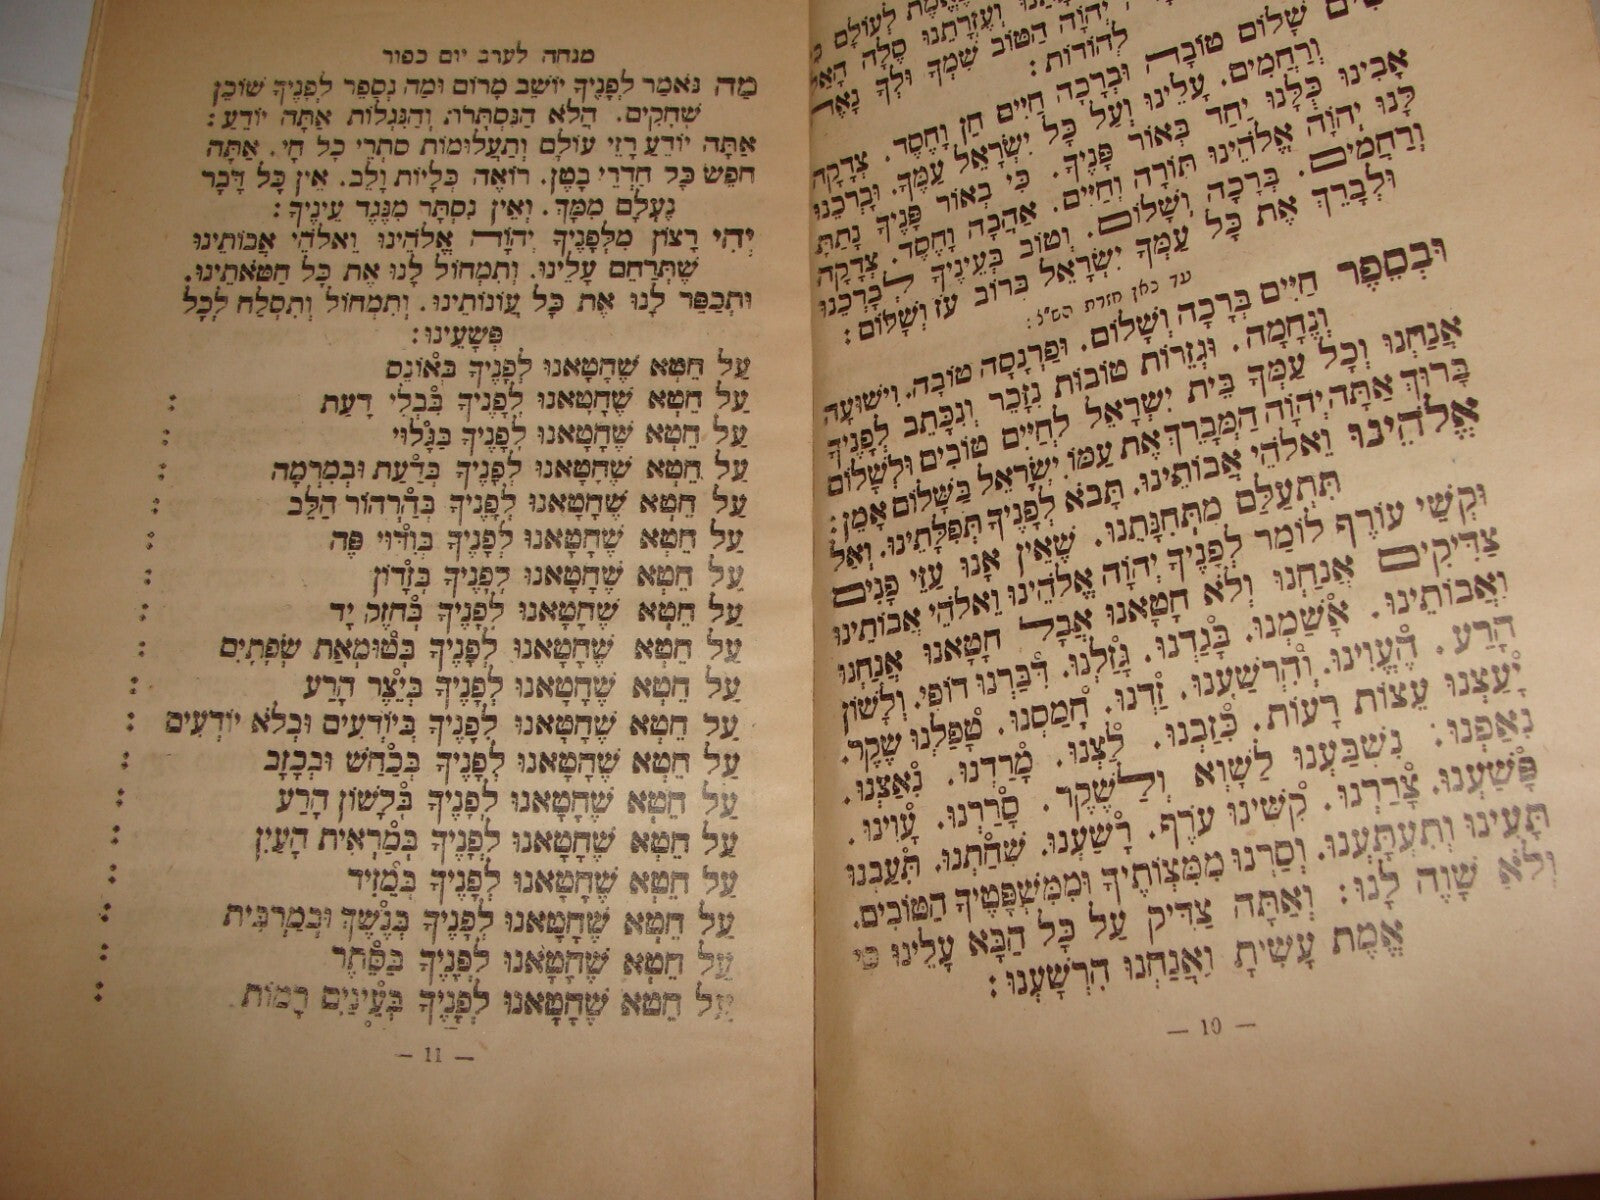 אֱמֶת לְעוֹלָם
וְעֶזְרָתֵנוּ סֶלָה הָאֵל
יְהֹוָה הַטּוֹב שִׁמְךָ וּלְךָ נָאֶה
לְהוֹדוֹת:
שִׂים שָׁלוֹם טוֹבָה וּבְרָכָה חַיִּים חֵן וָחֶסֶד. צְדָקָה
וְרַחֲמִים. עָלֵינוּ וְעַל כָּל יִשְׂרָאֵל עַמֶּךָ. וּבָרְכֵנוּ
אָבִינוּ כֻּלָּנוּ יַחַד בְּאוֹר פָּנֶיךָ. כִּי בְאוֹר פָּנֶיךָ נָתַתָּ
לָּנוּ יְהֹוָה אֱלֹהֵינוּ תּוֹרָה וְחַיִּים. אַהֲבָה וָחֶסֶד. צְדָקָה
וְרַחֲמִים. בְּרָכָה וְשָׁלוֹם. וְטוֹב בְּעֵינֶיךָ לְבָרְכֵנוּ
וּלְבָרֵךְ אֶת כָּל עַמְּךָ יִשְׂרָאֵל בְּרוֹב עֹז וְשָׁלוֹם:
עד כאן חזרת הש״ץ:
וּבְסֵפֶר חַיִּים בְּרָכָה וְשָׁלוֹם. וּפַרְנָסָה טוֹבָה. וִישׁוּעָה
וְנֶחָמָה. וּגְזֵרוֹת טוֹבוֹת נִזָּכֵר וְנִכָּתֵב לְפָנֶיךָ
אֲנַחְנוּ וְכָל עַמְּךָ בֵּית יִשְׂרָאֵל לְחַיִּים טוֹבִים וּלְשָׁלוֹם
בָּרוּךְ אַתָּה יְהֹוָה הַמְּבָרֵךְ אֶת עַמּוֹ יִשְׂרָאֵל בַּשָּׁלוֹם אָמֵן:
אֱלֹהֵינוּ וֵאלֹהֵי אֲבוֹתֵינוּ. תָּבֹא לְפָנֶיךָ תְּפִלָּתֵינוּ. וְאַל
תִּתְעַלַּם מִתְּחִנָּתֵנוּ. שֶׁאֵין אָנוּ עַזֵּי פָנִים
וּקְשֵׁי עוֹרֶף לוֹמַר לְפָנֶיךָ יְהֹוָה אֱלֹהֵינוּ וֵאלֹהֵי אֲבוֹתֵינוּ
צַדִּיקִים אֲנַחְנוּ וְלֹא חָטָאנוּ אֲבָל חָטָאנוּ אֲנַחְנוּ
וַאֲבוֹתֵינוּ. אָשַׁמְנוּ. בָּגַדְנוּ. גָּזַלְנוּ. דִּבַּרְנוּ דוֹפִי. וְלָשׁוֹן
הָרַע. הֶעֱוִינוּ. וְהִרְשַׁעְנוּ. זַדְנוּ. חָמַסְנוּ. טָפַלְנוּ שֶׁקֶר.
יָעַצְנוּ עֵצוֹת רָעוֹת. כִּזַּבְנוּ. לַצְנוּ. מָרַדְנוּ. נִאַצְנוּ.
נִאַפְנוּ: נִשְׁבַּעְנוּ לַשָּׁוְא וְלַשֶּׁקֶר. סָרַרְנוּ. עָוִינוּ.
פָּשַׁעְנוּ. צָרַרְנוּ. קִשִּׁינוּ עֹרֶף. רָשַׁעְנוּ. שִׁחַתְנוּ. תִּעַבְנוּ
תָּעִינוּ וְתִעְתָּעְנוּ. וְסַרְנוּ מִמִּצְוֹתֶיךָ וּמִמִּשְׁפָּטֶיךָ הַטּוֹבִים.
וְלֹא שָׁוֶה לָנוּ: וְאַתָּה צַדִּיק עַל כָּל הַבָּא עָלֵינוּ כִּי
אֱמֶת עָשִׂיתָ וַאֲנַחְנוּ הִרְשָׁעְנוּ:
— 10 —
מנחה לערב יום כפור
מַה נֹּאמַר לְפָנֶיךָ יוֹשֵׁב מָרוֹם וּמַה נְסַפֵּר לְפָנֶיךָ שׁוֹכֵן
שְׁחָקִים. הֲלֹא הַנִּסְתָּרוֹת וְהַנִּגְלוֹת אַתָּה יוֹדֵעַ:
אַתָּה יוֹדֵעַ רָזֵי עוֹלָם וְתַעֲלוּמוֹת סִתְרֵי כָל חַי. אַתָּה
חֹפֵשׂ כָּל חַדְרֵי בָטֶן. רוֹאֶה כְּלָיוֹת וָלֵב. אֵין כָּל דָּבָר
נֶעְלָם מִמָּךְ. וְאֵין נִסְתָּר מִנֶּגֶד עֵינֶיךָ:
יְהִי רָצוֹן מִלְּפָנֶיךָ יְהֹוָה אֱלֹהֵינוּ וֵאלֹהֵי אֲבוֹתֵינוּ
שֶׁתְּרַחֵם עָלֵינוּ. וְתִמְחוֹל לָנוּ אֶת כָּל חַטֹּאתֵינוּ.
וּתְכַפֵּר לָנוּ אֶת כָּל עֲוֹנוֹתֵינוּ. וְתִמְחוֹל וְתִסְלַח לְכָל
פְּשָׁעֵינוּ:
עַל חֵטְא שֶׁחָטָאנוּ לְפָנֶיךָ בְּאוֹנֶס
עַל חֵטְא שֶׁחָטָאנוּ לְפָנֶיךָ בִּבְלִי דָעַת :
עַל חֵטְא שֶׁחָטָאנוּ לְפָנֶיךָ בַּגָּלוּי :
עַל חֵטְא שֶׁחָטָאנוּ לְפָנֶיךָ בְּדַעַת וּבְמִרְמָה :
עַל חֵטְא שֶׁחָטָאנוּ לְפָנֶיךָ בְּהִרְהוֹר הַלֵּב :
עַל חֵטְא שֶׁחָטָאנוּ לְפָנֶיךָ בְּוִדּוּי פֶּה :
עַל חֵטְא שֶׁחָטָאנוּ לְפָנֶיךָ בְּזָדוֹן :
עַל חֵטְא שֶׁחָטָאנוּ לְפָנֶיךָ בְּחֹזֶק יָד :
עַל חֵטְא שֶׁחָטָאנוּ לְפָנֶיךָ בְּטוּמְאַת שְׂפָתַיִם :
עַל חֵטְא שֶׁחָטָאנוּ לְפָנֶיךָ בְּיֵצֶר הָרַע :
עַל חֵטְא שֶׁחָטָאנוּ לְפָנֶיךָ בְּיוֹדְעִים וּבְלֹא יוֹדְעִים :
עַל חֵטְא שֶׁחָטָאנוּ לְפָנֶיךָ בְּכַחַשׁ וּבְכָזָב :
עַל חֵטְא שֶׁחָטָאנוּ לְפָנֶיךָ בְּלָשׁוֹן הָרַע :
עַל חֵטְא שֶׁחָטָאנוּ לְפָנֶיךָ בְּמַרְאִית הָעַיִן :
עַל חֵטְא שֶׁחָטָאנוּ לְפָנֶיךָ בְּמֵזִיד :
עַל חֵטְא שֶׁחָטָאנוּ לְפָנֶיךָ בְּנֶשֶׁךְ וּבְמַרְבִּית :
עַל חֵטְא שֶׁחָטָאנוּ לְפָנֶיךָ בַּסֵּתֶר :
עַל חֵטְא שֶׁחָטָאנוּ לְפָנֶיךָ בְּעֵינַיִם רָמוֹת :
— 11 —